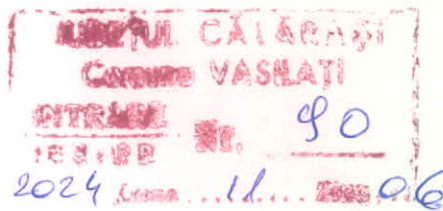 JUDEŢUL CĂLĂRAŞI
Comuna VASILAŢI
INTRARE
IESIRE Nr. 90
2024 Luna 11 Ziua 06